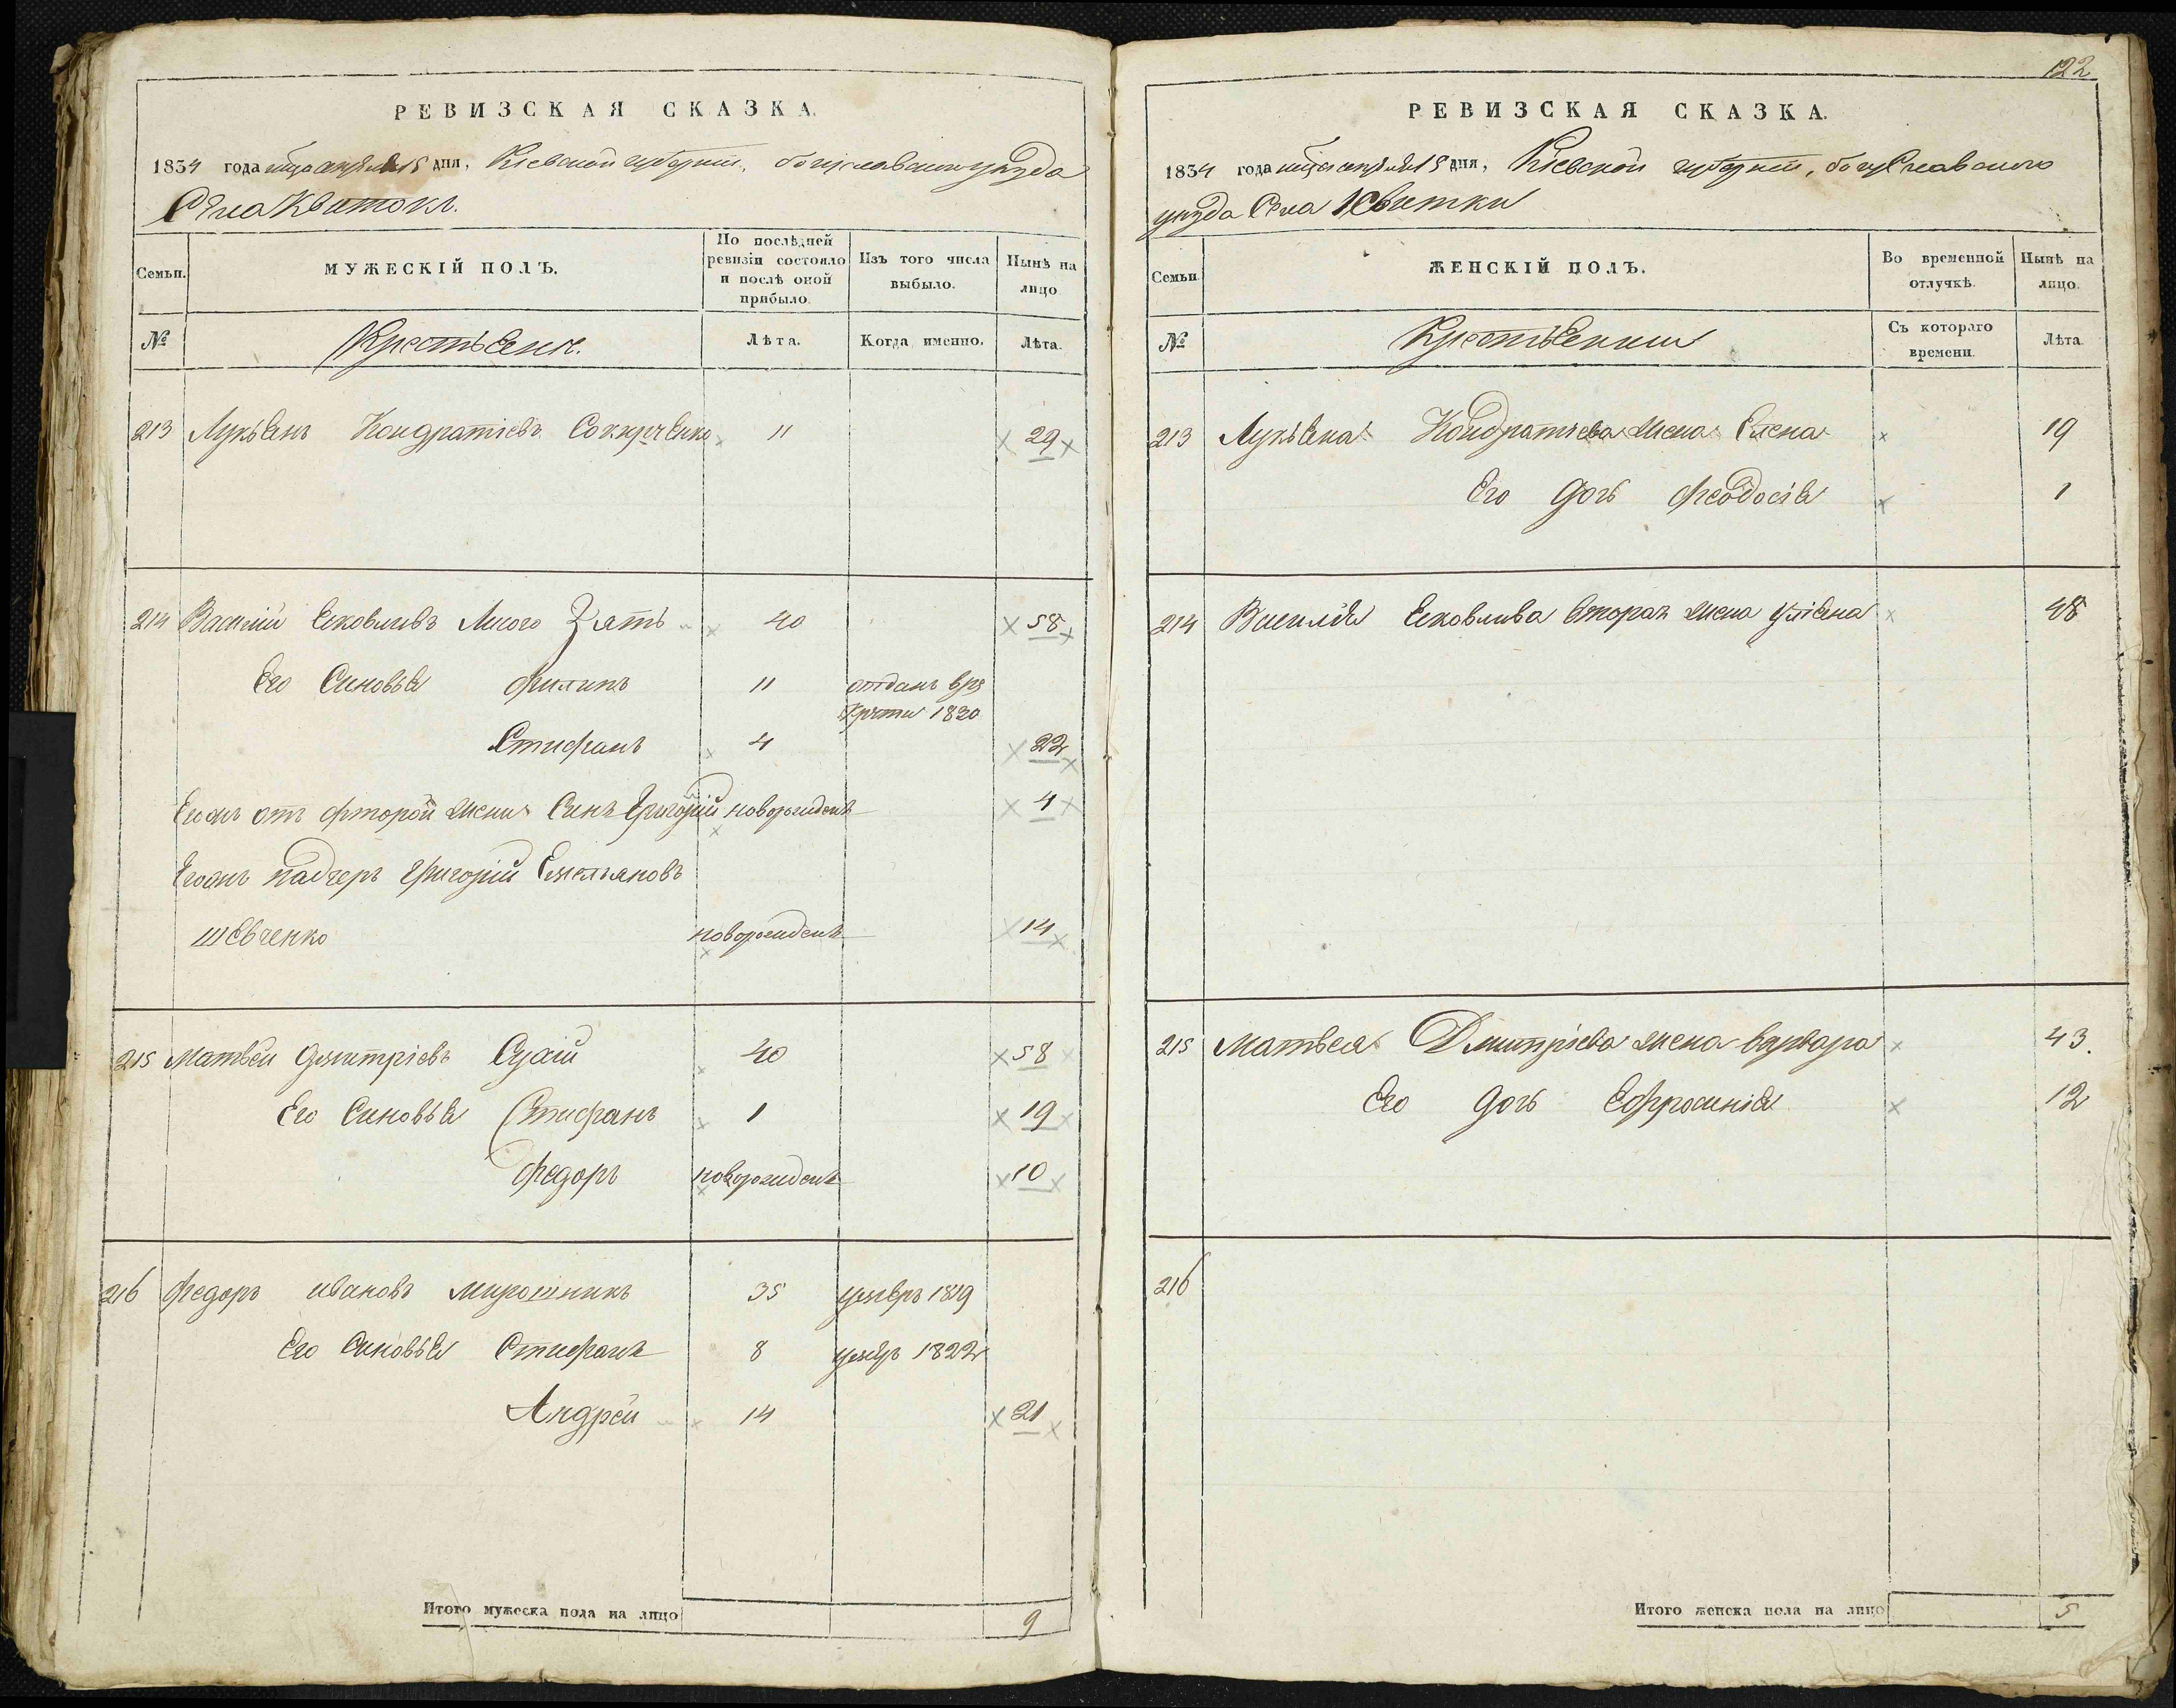 РЕВИЗСКАЯ СКАЗКА.
1834 года мца апреля 15 дня, Кіевской губерніи, богуславского уезда
Села Квитокъ.
Семьи.
МУЖЕСКІЙ ПОЛЪ.
По послѣдней ревизіи состояло и послѣ оной прибыло.
Изъ того числа выбыло.
Нынѣ на лицо
№
Крестьяне.
Лѣта.
Когда именно.
Лѣта.
213 Лукьянъ Кондратіевъ 11 29
214 Василий Яковливъ Лисого Зять 40 58
Его Синовья Филипъ 11 отданъ врѣ
крути 1820
Стифанъ 4 22
Егожъ отъ фторой жени Синъ Григорій новорожденъ 4
Егожъ падчеръ Григорій Емельяновъ
шевченко новорожденъ 14
215 Матвей Дмитріевъ Сухій 40 58
Его Синовья Стифанъ 1 19
Федоръ новорожденъ 10
216 Федоръ ивановъ мирошникъ 35 умеръ 1819
Его Синовья Стифанъ 8 умеръ 1822
Андрей 14 21
Итого мужеска пола на лицо 9
122
РЕВИЗСКАЯ СКАЗКА.
1834 года мца апреля 15 дня, Кіевской губерніи, богуславского
уезда Села Квитки
Семьи
ЖЕНСКІЙ ПОЛЪ.
Во временной отлучкѣ.
Нынѣ на лицо.
№
Крестьянки
Съ котораго времени.
Лѣта
213 Лукьяна Кондратіева жена Елена 19
Его дочь Феодосія 1
214 Василія Яковлива вторая жена уліяна 48
215 Матвея Дмитріева жена варвара 43.
Его дочь Ефросинія 12
216
Итого женска пола на лицо 5